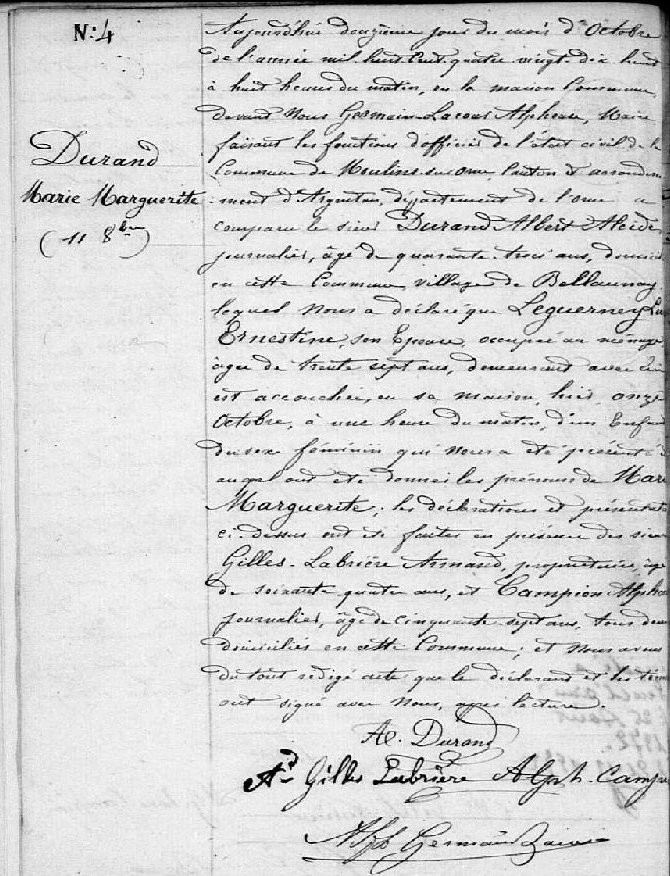 N: 4
Durand
Marie Marguerite
(11 8bre)
Aujourd'hui douzième jour du mois d'Octobre
de l'année mil huit cent quatre vingt dix huit
à huit heures du matin, en la maison Commune,
devant Nous Germain-Lacour Alphonse, Maire
faisant les fonctions d'officier de l'état civil de la
Commune de Moulins sur orne Canton et arrondisse
ment d'Argentan, département de l'orne a
comparu le sieur Durand Albert Alcide
journalier, âgé de quarante trois ans, domicilié
en cette Commune village de Bellaunay
lequel Nous a déclaré que Leguerney
Ernestine, son Epouse, occupée au ménage
âgée de trente sept ans, demeurant avec lui
est accouchée, en sa maison, hier onze
Octobre, à une heure du matin, d'un Enfant
du sexe féminin qui nous a été présenté
auquel ont été donnés les prénoms de Marie
Marguerite; les déclarations et présentation
ci-dessus ont été faites en présence des sieurs
Gilles-Labrière Armand, propriétaire, âgé
de soixante quatre ans, et Campion Alphonse
journalier, âgé de cinquante sept ans, tous deux
domiciliés en cette Commune; et Nous avons
du tout rédigé acte que le déclarant et les témoins
ont signé avec Nous, après lecture.
Al. Durand
Ad Gilles Labrière Alph. Camp
Alph Germain